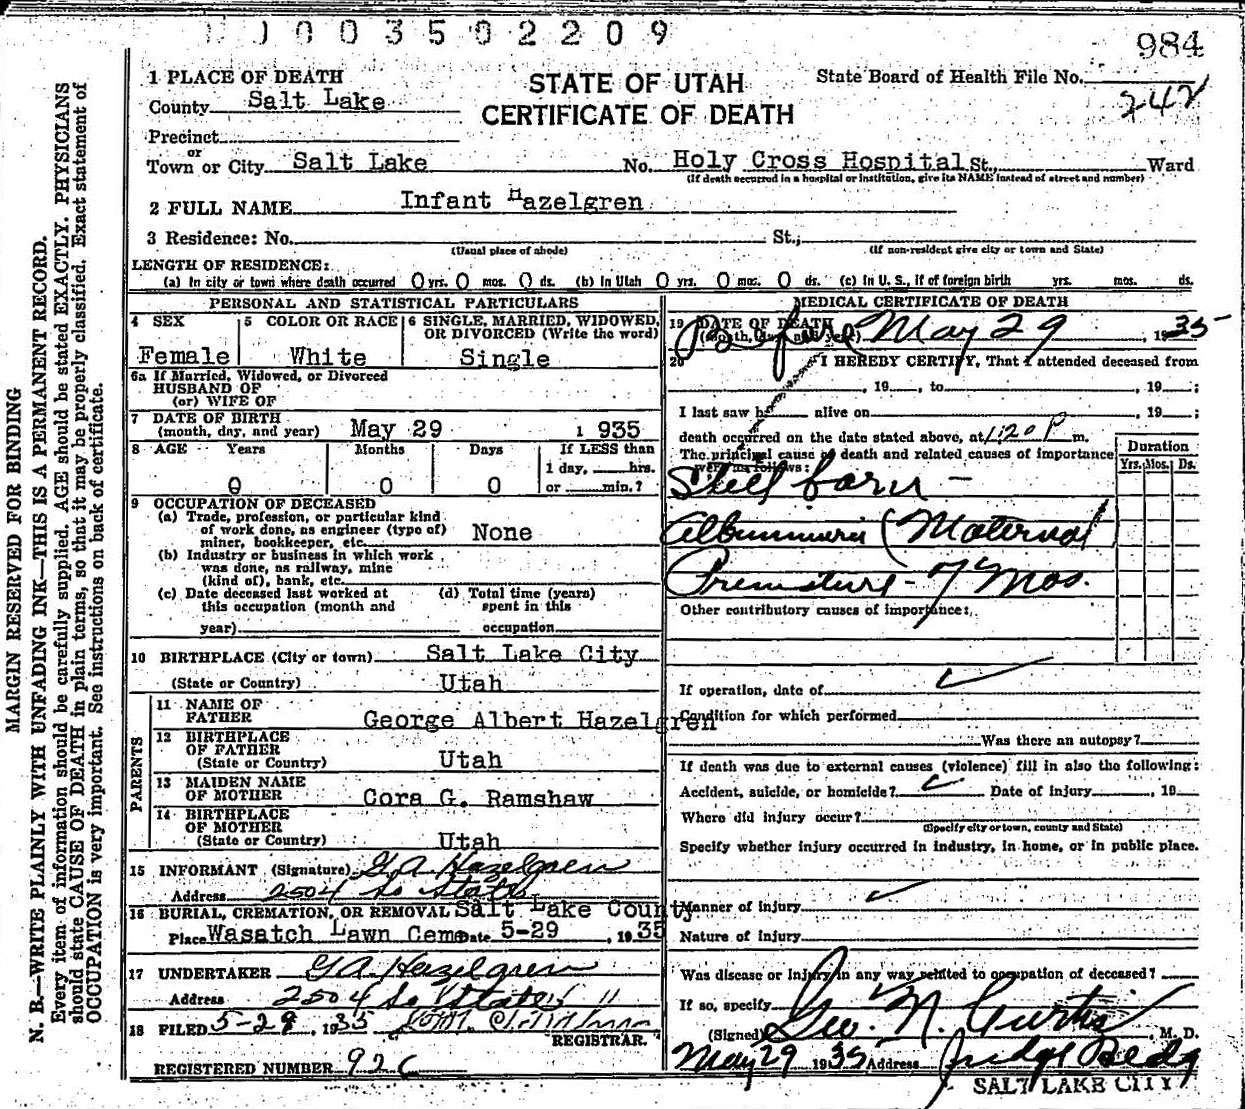 0 0 3 5 0 2 2 0 9
984
1 PLACE OF DEATH
STATE OF UTAH
CERTIFICATE OF DEATH
State Board of Health File No.
242
County Salt Lake
Precinct
or
Town or City Salt Lake No. Holy Cross Hospital St., Ward
(If death occurred in a hospital or institution, give its NAME instead of street and number)
2 FULL NAME Infant Hazelgren
3 Residence: No. St.,
(Usual place of abode) (If non-resident give city or town and State)
LENGTH OF RESIDENCE:
(a) In city or town where death occurred 0 yrs. 0 mos. 0 ds. (b) In Utah 0 yrs. 0 mos. 0 ds. (c) In U. S., if of foreign birth yrs. mos. ds.
PERSONAL AND STATISTICAL PARTICULARS
4 SEX
Female
5 COLOR OR RACE
White
6 SINGLE, MARRIED, WIDOWED,
OR DIVORCED (Write the word)
Single
6a If Married, Widowed, or Divorced
HUSBAND OF
(or) WIFE OF
7 DATE OF BIRTH
(month, day, and year) May 29 1935
8 AGE Years Months Days If LESS than
1 day, hrs.
0 0 0 or min.?
9 OCCUPATION OF DECEASED
(a) Trade, profession, or particular kind
of work done, as engineer (type of)
miner, bookkeeper, etc. None
(b) Industry or business in which work
was done, as railway, mine
(kind of), bank, etc.
(c) Date deceased last worked at
this occupation (month and
year)
(d) Total time (years)
spent in this
occupation
10 BIRTHPLACE (City or town) Salt Lake City
(State or Country) Utah
PARENTS
11 NAME OF
FATHER George Albert Hazelgren
12 BIRTHPLACE
OF FATHER
(State or Country) Utah
13 MAIDEN NAME
OF MOTHER Cora G. Ramshaw
14 BIRTHPLACE
OF MOTHER
(State or Country) Utah
15 INFORMANT (Signature) G A Hazelgren
Address 2504 So State
16 BURIAL, CREMATION, OR REMOVAL Salt Lake County
Place Wasatch Lawn Cem Date 5-29, 1935
17 UNDERTAKER G A Hazelgren
Address 2504 So State
18 FILED 5-29, 1935
REGISTRAR.
REGISTERED NUMBER 926
MEDICAL CERTIFICATE OF DEATH
19 DATE OF DEATH
(month, day, and year) Before May 29, 1935
20 I HEREBY CERTIFY, That I attended deceased from
, 19 , to , 19 ;
I last saw h alive on , 19 ;
death occurred on the date stated above, at 1:20 P m.
The principal cause of death and related causes of importance
were as follows:
Duration
Yrs. Mos. Ds.
Still born -
Albuminuria (Maternal)
Premature - 7 Mos.
Other contributory causes of importance:
If operation, date of
Condition for which performed
Was there an autopsy?
If death was due to external causes (violence) fill in also the following:
Accident, suicide, or homicide? Date of injury , 19
Where did injury occur?
(Specify city or town, county and State)
Specify whether injury occurred in industry, in home, or in public place.
Manner of injury
Nature of injury
Was disease or injury in any way related to occupation of deceased?
If so, specify
(Signed) Geo. N. Curtis, M. D.
May 29 1935 Address Judge Bldg
SALT LAKE CITY
MARGIN RESERVED FOR BINDING
N. B.—WRITE PLAINLY WITH UNFADING INK—THIS IS A PERMANENT RECORD.
Every item of information should be carefully supplied. AGE should be stated EXACTLY. PHYSICIANS
should state CAUSE OF DEATH in plain terms, so that it may be properly classified. Exact statement of
OCCUPATION is very important. See instructions on back of certificate.